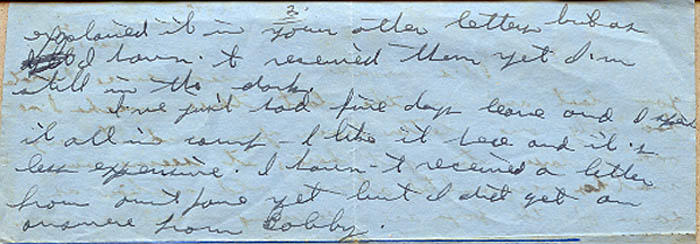 2.
explained it in your other letters but as
I haven't received them yet I'm
still in the dark.
I've just had five days leave and I spent
it all in camp - I like it here and it's
less expensive. I haven't received a letter
from aunt Jane yet but I did get an
answere from Bobby.